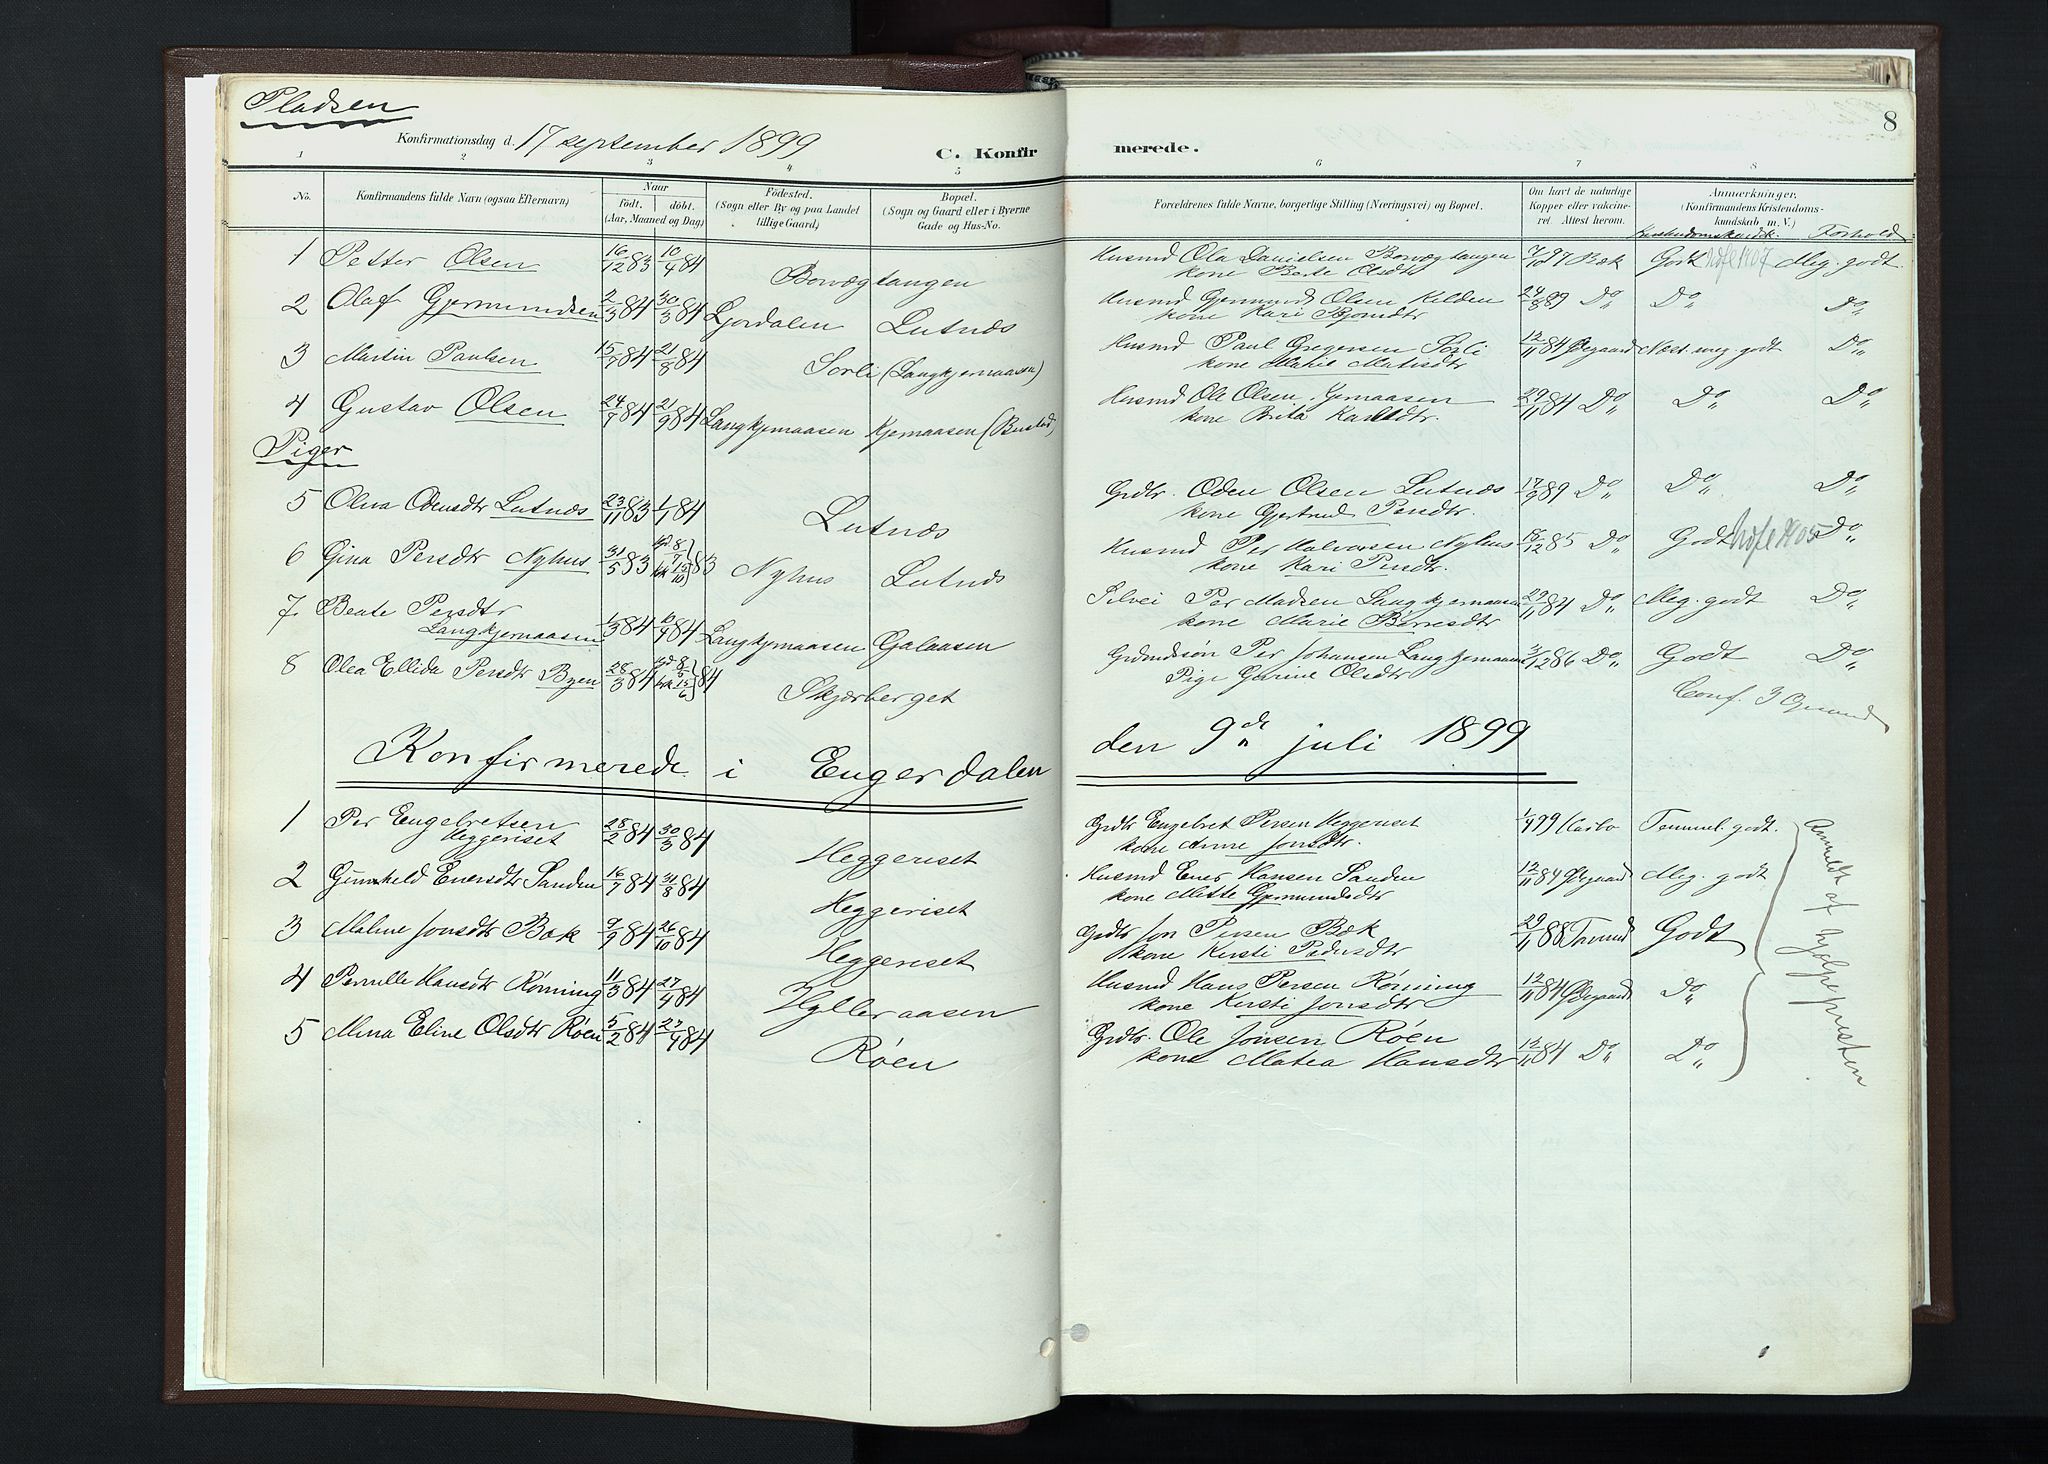 Pladsen
Konfirmationsdag d. 17 september 1899
C. Konfirmerede.
8
1 2 3 4 5 6 7 8
No.
Konfirmandens fulde Navn (ogsaa Efternavn)
Naar
Født. døbt.
(Aar, Maaned og Dag)
Födested.
(Sogn eller By og paa Landet
tillige Gaard)
Bopæl.
(Sogn og Gaard eller i Byerne
Gade og Hus-No.
Forældrenes fulde Navne, borgerlige Stilling (Næringsvei) og Bopæl.
Om havt de naturlige
Kopper eller vakcine-
ret. Attest herom.
Anmærkninger.
(Konfirmandens Kristendoms-
kundskab m. V.)
Forhold
1 Petter Olsen 16/12 83 10/4 84 Husmd Ola Danielsen Borvægtangen 7/10 97 Bæk Godt Meg. godt
Borvægtangen kone Berte Olsdtr
2 Olaf Gjermundsen 2/3 84 30/3 84 Ljordalen Lutnæs Husmd Gjermund Olsen Kilden 24/8 89 Do Do Do
kone Kari Bjørndtr
3 Martin Paulsen 15/7 84 21/8 84 Sorli (Langkjernaasen) Husmd Paul Gregersen Sorli 12/11 84 Ødegaard Næst. meg. godt Do
kone Marie Matisdtr
4 Gustav Olsen 24/7 84 21/9 84 Langkjernaasen Kjernaasen Husmd Ole Olsen 29/11 84 Do Do Do
kone Brita Karlsdtr.
Piger
5 Olna Odensdtr Lutnæs 23/11 83 1/1 84 Lutnæs Grdbr. Oden Olsen Lutnæs 17/9 89 Do Do Do
kone Gjertrud Persdtr.
6 Gina Persdtr Nyhus 31/5 83 8/7 15/10 83 Nyhus Lutnæs Husmd Per Halvorsen Nyhus 15/12 85 Do Godt Do
kone Kari Persdtr.
7 Beate Persdtr Selvei Per Madsen Langkjernaasen 29/11 84 Do Meg. godt Do
Langkjernaasen 1/3 84 10/4 84 Langkjernaasen Galaasen kone Marie Børresdtr
8 Olea Ellida Persdtr Byen 28/3 84 8/5 15/6 84 Skjærberget Grdmdssøn Per Johansen Langkjernaasen 3/12 86 Do Godt Do
Pige Gurine Olsdtr
Conf. I
Konfirmerede i Engerdalen den 9de juli 1899
1 Per Engebretsen Grdbr Engebret Persen Heggeriset 1/7 99 Temmel. godt.
Heggeriset 28/2 84 30/3 84 Heggeriset kone Anne Jonsdtr.
2 Gunhild Enersdtr Sanden 16/7 84 31/8 84 Heggeriset Husmd Ener Hansen Sanden 12/11 84 Ødegaard Meg. godt
kone Mette Gjermundsdtr
3 Malene Jonsdtr Bæk 9/9 84 26/10 84 Heggeriset Grdbr Jon Persen Bæk 29/11 88 Godt
kone Kersti Pedersdtr
4 Pernille Hansdtr Rønning 11/3 84 27/4 84 Hylleraasen Husmd Hans Persen Rønning 12/11 84 Ødegaard Do
kone Kersti Jonsdtr
5 Mina Eline Olsdtr Røen 5/2 84 27/4 84 Røen Grdbr. Ole Jonsen Røen 12/11 84 Do Do
kone Matea Hansdtr
Anmeldt af hjelpepresten